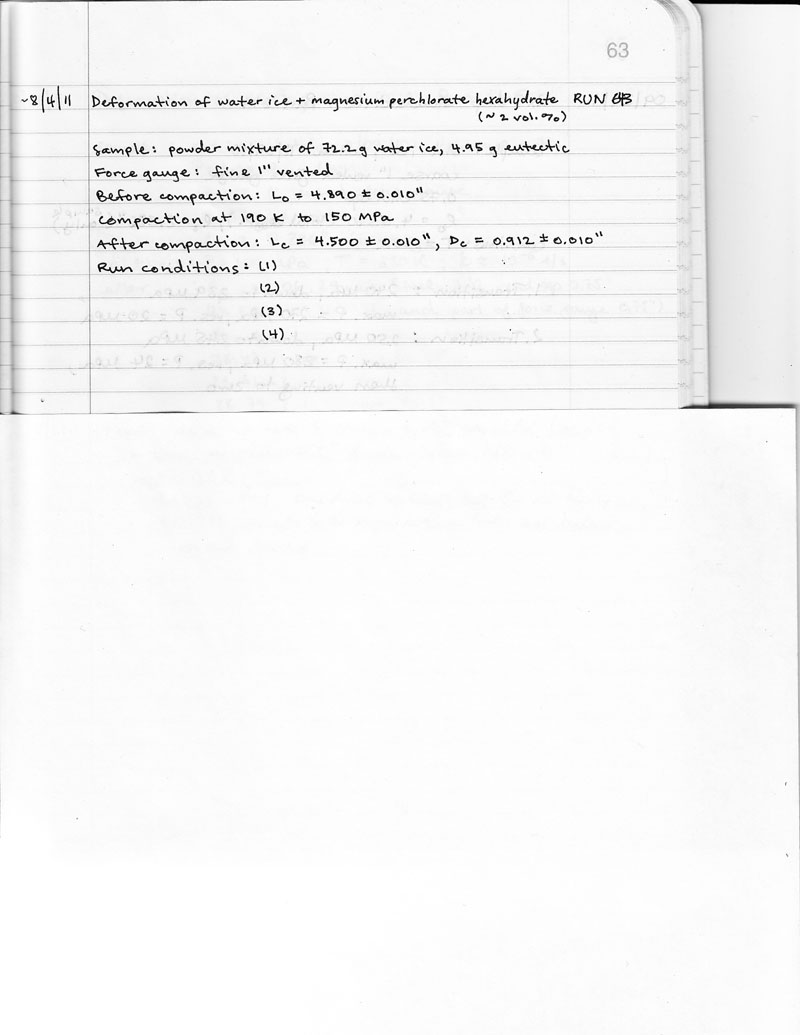 63
~8/4/11 Deformation of water ice + magnesium perchlorate hexahydrate RUN
(~ 2 vol. %)
Sample: powder mixture of 72.2 g water ice, 4.95 g eutectic
Force gauge: fine 1" vented
Before compaction: L₀ = 4.890 ± 0.010"
Compaction at 190 K to 150 MPa
After compaction: Lc = 4.500 ± 0.010", Dc = 0.912 ± 0.010"
Run conditions: (1)
(2)
(3)
(4)